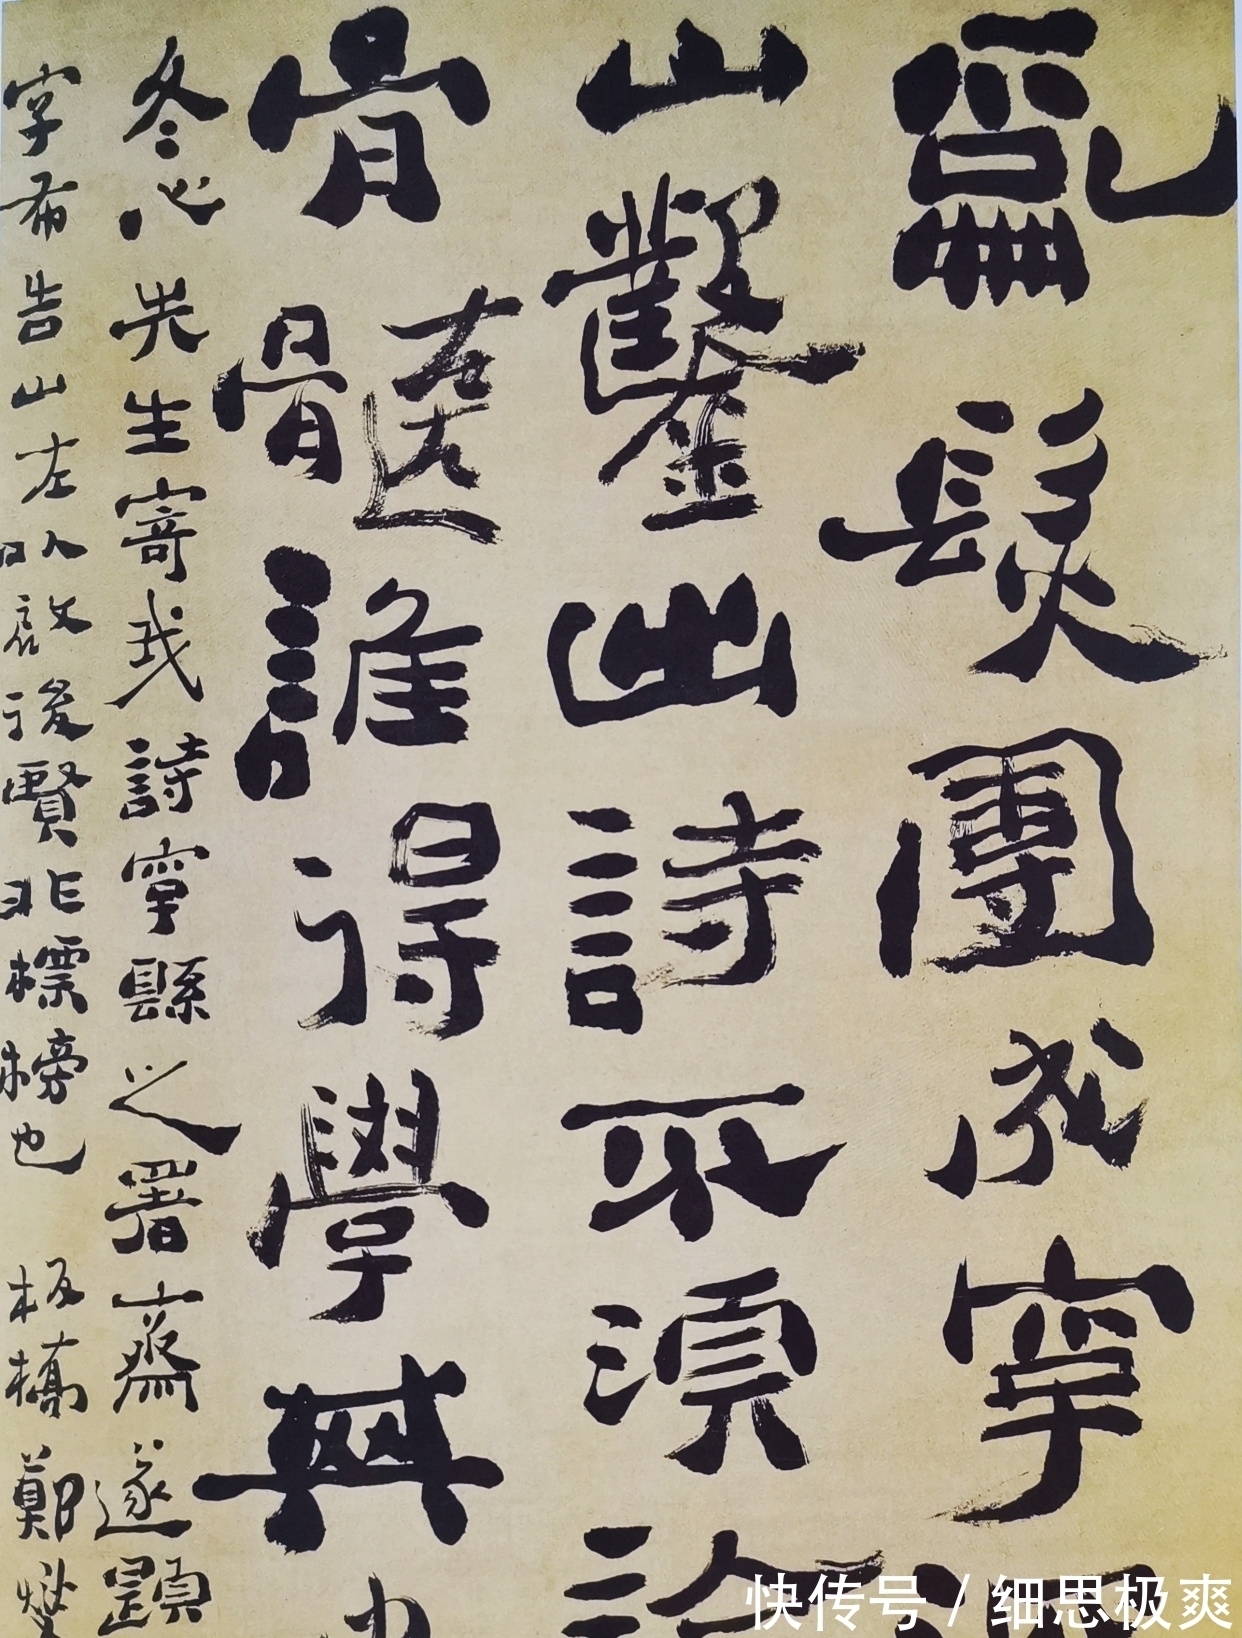 亂髮團成字
山鑿出詩不須論
骨髓誰得學其
冬心先生寄我詩字縣之署齋遂題
字布告山左以啟後賢非標榜也 板橋鄭燮
快传号/细思极爽